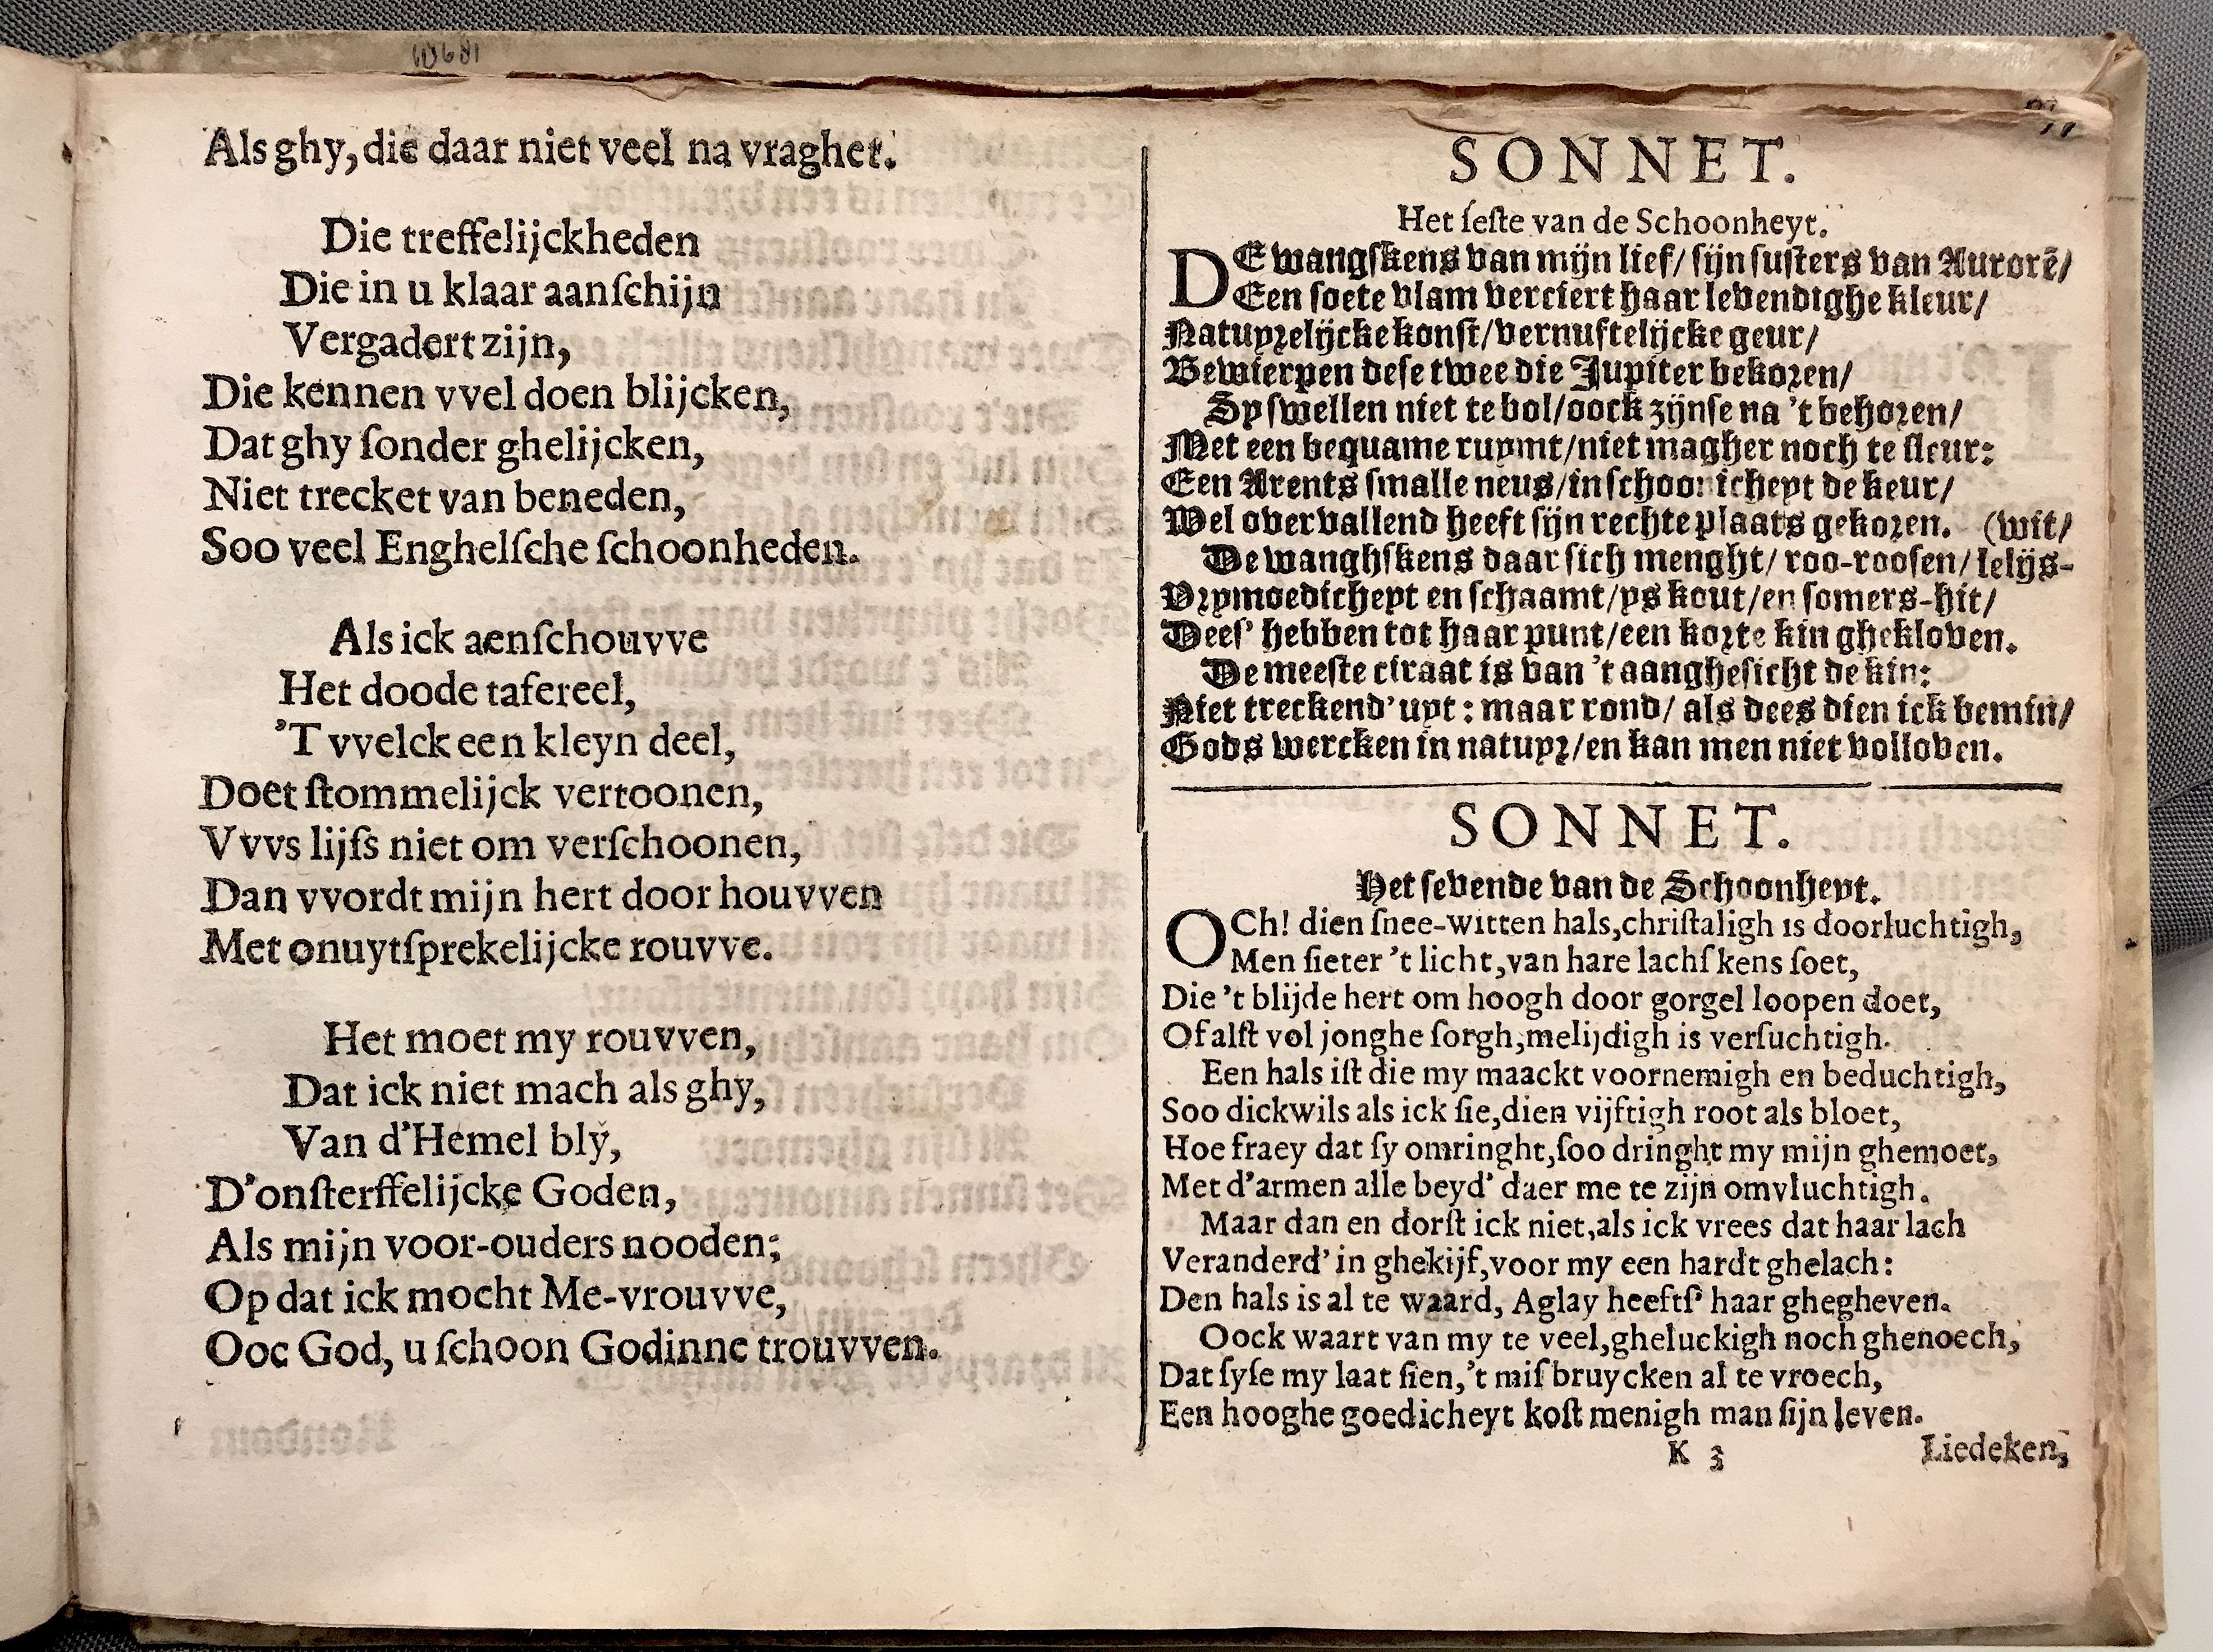 Als ghy, die daar niet veel na vraghet.
Die treffelijckheden
Die in u klaar aanſchijn
Vergadert zijn,
Die kennen vvel doen blijcken,
Dat ghy ſonder ghelijcken,
Niet trecket van beneden,
Soo veel Enghelſche ſchoonheden.
Als ick aenſchouvve
Het doode tafereel,
'T vvelck een kleyn deel,
Doet ſtommelijck vertoonen,
Vvvs lijfs niet om verſchoonen,
Dan vvordt mijn hert door houvven
Met onuytſprekelijcke rouvve.
Het moet my rouvven,
Dat ick niet mach als ghy,
Van d'Hemel blÿ,
D'onſterffelijcke Goden,
Als mijn voor-ouders nooden;
Op dat ick mocht Me-vrouvve,
Ooc God, u ſchoon Godinne trouvven.
SONNET.
Het ſeſte van de Schoonheyt.
DE wangſkens van mijn lief/ ſijn ſuſters van Aurorẽ/
Een ſoete vlam verciert haar levendighe kleur/
Natuyrelijcke konſt/vernuftelijcke geur/
Bewierpen deſe twee die Jupiter bekoren/
Sy ſwellen niet te bol/oock zijnſe na 't behoren/
Met een bequame ruymt/niet magher noch te ſleur:
Een Arents ſmalle neus/in ſchoonicheyt de keur/
Wel overvallend heeft ſijn rechte plaats gekoren. (wit/
De wanghſkens daar ſich menght/ roo-rooſen/ lelijs-
Vrymoedicheyt en ſchaamt/ys kout/en ſomers-hit/
Dees' hebben tot haar punt/een korte kin ghekloven.
De meeſte ciraat is van 't aangheſicht de kin:
Niet treckend' uyt: maar rond/ als dees dien ick bemin/
Gods wercken in natuyr/en kan men niet volloven.
SONNET.
Het ſevende van de Schoonheyt.
OCh! dien ſnee-witten hals,chriſtaligh is doorluchtigh,
Men ſieter 't licht,van hare lachſkens ſoet,
Die 't blijde hert om hoogh door gorgel loopen doet,
Of alſt vol jonghe ſorgh,melijdigh is verſuchtigh.
Een hals iſt die my maackt voornemigh en beduchtigh,
Soo dickwils als ick ſie,dien vijftigh root als bloet,
Hoe fraey dat ſy omringht,ſoo dringht my mijn ghemoet,
Met d'armen alle beyd' daer me te zijn omvluchtigh.
Maar dan en dorſt ick niet,als ick vrees dat haar lach
Veranderd' in ghekijf,voor my een hardt ghelach:
Den hals is al te waard, Aglay heeftſ' haar ghegheven.
Oock waart van my te veel,gheluckigh noch ghenoech,
Dat ſyſe my laat ſien,'t miſbruycken al te vroech,
Een hooghe goedicheyt koſt menigh man ſijn leven.
K 3 Liedeken,